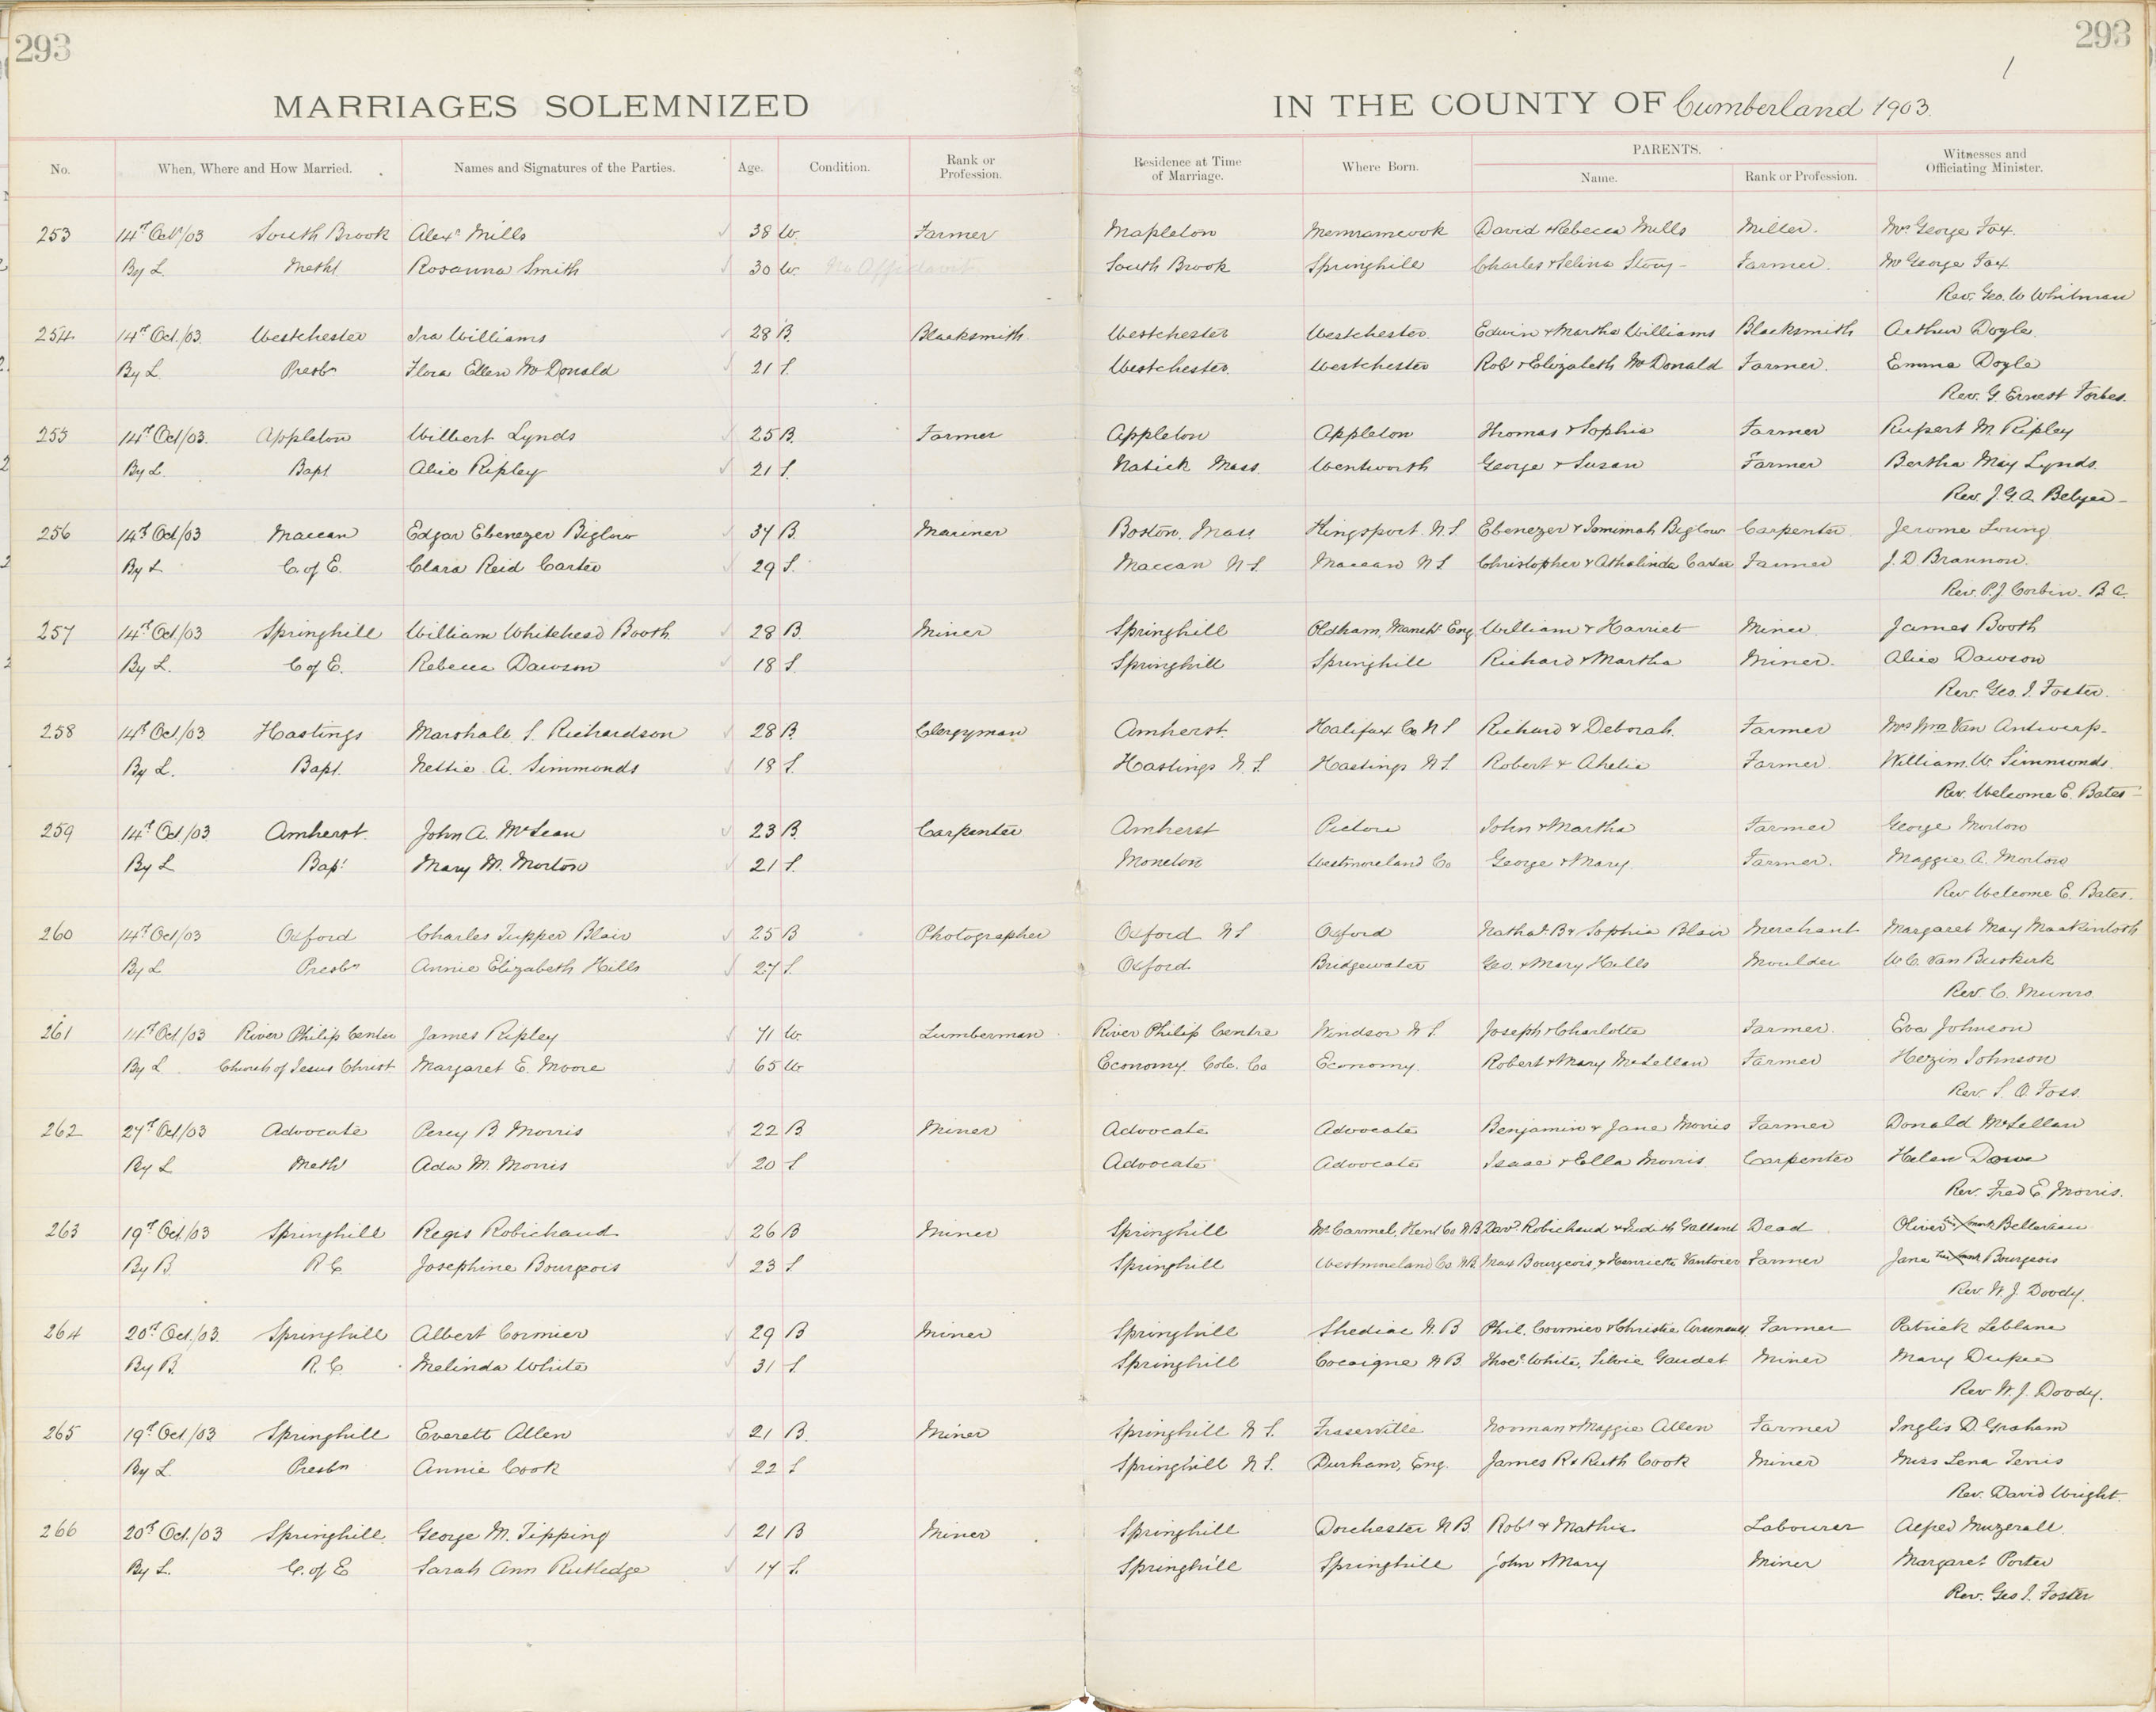 293
293
MARRIAGES SOLEMNIZED IN THE COUNTY OF Cumberland 1903.
No. When, Where and How Married. Names and Signatures of the Parties. Age. Condition. Rank or Profession. Residence at Time of Marriage. Where Born. PARENTS. Name. Rank or Profession. Witnesses and Officiating Minister.
253 14th Oct/03 South Brook Alexr Mills 38 W. Farmer Mapleton Memramcook David & Rebecca Mills Miller. Mrs George Fox.
By L. Meth Rosanna Smith 30 W. No Affidavit South Brook Springhill Charles & Selina Story Farmer. Mr George Fox
Rev. Geo. W Whitman
254 14th Oct./03. Westchester Ira Williams 28 B. Blacksmith Westchester Westchester. Edwin & Martha Williams Blacksmith Arthur Doyle.
By L. Presbn Flora Ellen McDonald 21 S. Westchester. Westchester Robt & Elizabeth McDonald Farmer. Emma Doyle
Rev. G. Ernest Forbes.
255 14th Oct/03. Appleton Wilbert Lynds 25 B. Farmer Appleton Appleton Thomas & Sophia Farmer Rupert M. Ripley
By L. Bapt Alice Ripley 21 S. Natick Mass. Wentworth George & Susan Farmer Bertha May Lynds.
Rev. J. G. A. Belyea
256 14th Oct/03 Maccan Edgar Ebenezer Biglow 37 B. Mariner Boston. Mass Kingsport. N.S. Ebenezer & Jemimah Biglow Carpenter. Jerome Loring
By L C. of E. Clara Reid Carter 29 S. Maccan N S. Maccan N S Christopher & Athalinda Carter Farmer J. D. Brannon.
Rev. P. J. Corbin. B A.
257 14th Oct./03 Springhill William Whitehead Booth 28 B. Miner Springhill Oldham, Manchr Eng. William & Harriet Miner James Booth
By L. C of E. Rebecca Dawson 18 S. Springhill Springhill Richard & Martha Miner. Alice Dawson
Rev. Geo. I. Foster.
258 14th Oct/03 Hastings Marshall S. Richardson 28 B. Clergyman Amherst. Halifax Co N S Richard & Deborah. Farmer Mrs Wm Van Antwerp.
By L. Bapt. Nettie A. Simmonds 18 S. Hastings N. S. Hastings N S. Robert & Ahelia Farmer. William. W. Simmonds.
Rev. Welcome E. Bates
259 14th Oct./03. Amherst. John A. McLean 23 B. Carpenter Amherst Pictou John & Martha Farmer George Morton
By L Bapt Mary M. Morton 21 S. Moncton Westmoreland Co George & Mary Farmer. Maggie A. Morton
Rev. Welcome E. Bates.
260 14th Oct/03 Oxford Charles Tupper Blair 25 B Photographer Oxford N S Oxford Nathal B & Sophia Blair Merchant Margaret May MacKintosh
By L Presbn Annie Elizabeth Hills 27 S. Oxford. Bridgewater Geo. & Mary Hills Moulder W. C. Van Buskirk
Rev. C. Munro.
261 14th Oct/03 River Philip Center James Ripley 71 W. Lumberman River Philip Centre Windsor N S. Joseph & Charlotte Farmer. Eva Johnson
By L. Church of Jesus Christ Margaret E. Moore 65 W Economy. Colc. Co Economy. Robert & Mary McLellan Farmer Johnson
Rev. S. O. Foss.
262 27th Oct/03 Advocate Percy B Morris 22 B Miner Advocate Advocate Benjamin & Jane Morris Farmer Donald McLellan
By L Meth Ada M. Morris 20 S Advocate Advocate Isaac & Ella Morris. Carpenter Helen Dowe
Rev. Fred E. Morris.
263 19th Oct/03 Springhill Regis Robichaud 26 B Miner Springhill Mt Carmel, Kent Co N.B. Davd Robichaud & Judith Gallant Dead Oliver his X mark Belliveau
By B. R C Josephine Bourgeois 23 S Springhill Westmoreland Co. N.B. Max Bourgeois, & Henriette Farmer Jane her X mark Bourgeois
Rev. W. J. Doody.
264 20th Oct./03. Springhill Albert Cormier 29 B Miner Springhill Shediac N. B Phil. Cormier & Christie Arseneault Farmer Patrick Leblanc
By B. R. C. Melinda White 31 S. Springhill Cocaigne N B. Thos. White, Silvie Gaudet Miner Mary Dupee
Rev W. J. Doody.
265 19th Oct/03 Springhill Everett Allen 21 B. Miner Springhill N S. Fraserville Norman & Maggie Allen Farmer Inglis D. Graham
By L. Presbn Annie Cook 22 S Springhill N S. Durham, Eng. James R & Ruth Cook Miner Miss Lena
Rev. David Wright.
266 20th Oct./03 Springhill. George M. Tipping 21 B Miner Springhill Dorchester N B. Robt & Mathis Labourer Alfred Muzerall.
By L. C. of E Sarah Ann Rutledge 17 S. Springhill Springhill John & Mary Miner Margaret Porter
Rev. Geo I. Foster